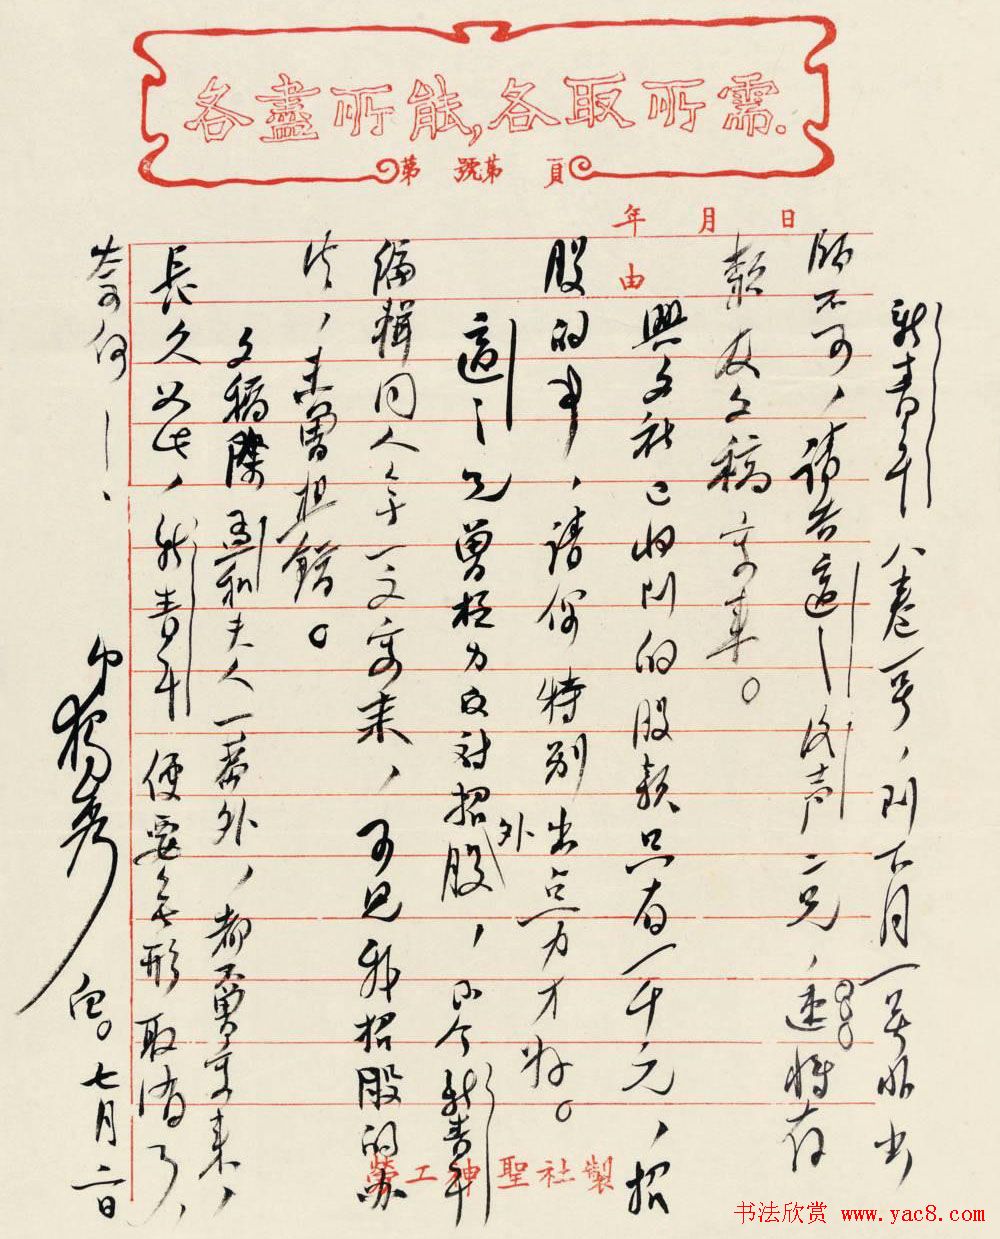 各盡所能,各取所需.
第 號第 頁
年 月 日
由
新青年八卷一号,到下月一号非出
版不可,請告適之洵声二兄,速將存
款及文稿寄來。
興文社已收到的股款只有一千元,招
股的事,請你特別出点力才好。
適之兄曾極力反対招外股,至今新青年
編輯同人無一文寄來,可見我招股的办
法,未曾想錯。
文稿除孟和夫人一篇外,都不曾寄來,
長久如此,新青年便要無形取消了,
奈何!
弟獨秀 白。七月二日
勞工神聖社製
书法欣赏 www.yac8.com